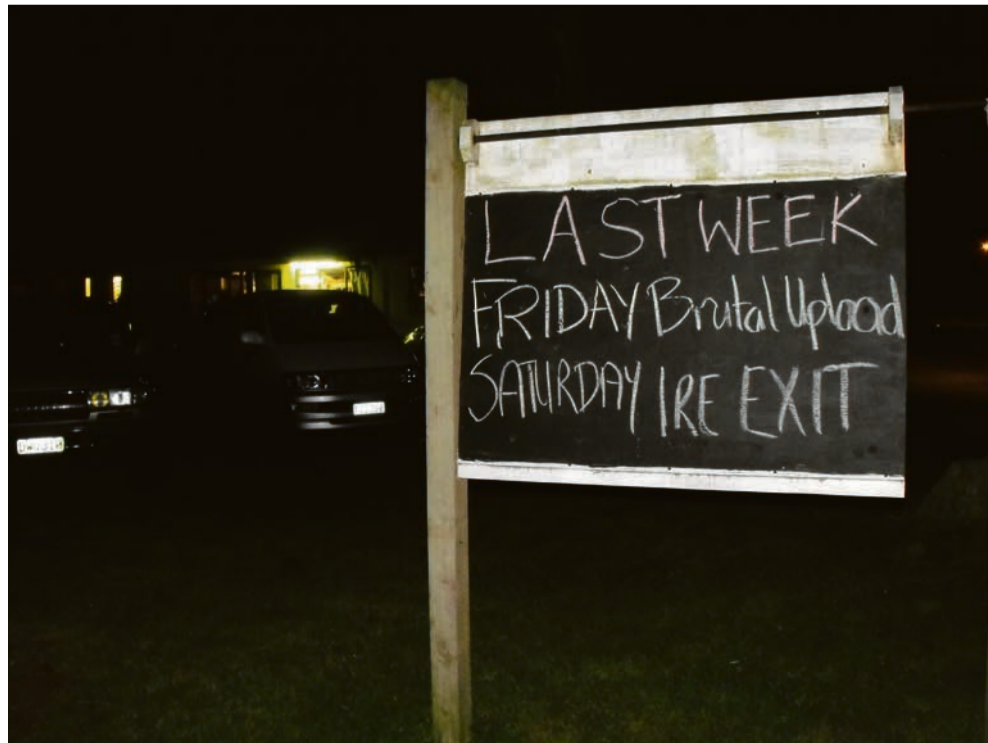 LAST WEEK
FRIDAY Brutal Upload
SATURDAY IRE EXIT